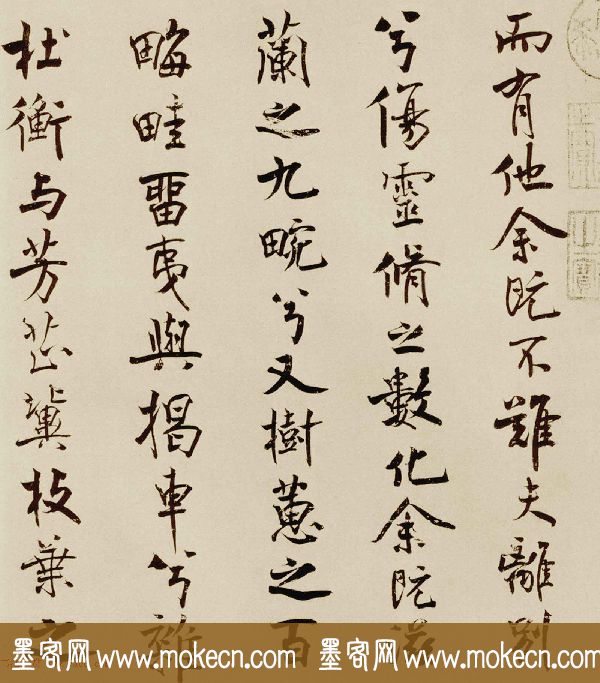 而有他余既不難夫離別
兮傷靈脩之數化余既滋
蘭之九畹兮又樹蕙之百
畮畦留夷與揭車兮雜
杜衡与芳芷冀枝葉
墨客网 www.mokecn.com 墨客网 www.mokecn.com